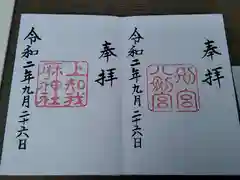 奉拝
別宮
八剣宮
令和二年九月二十六日
奉拝
上知我
麻神社
令和二年九月二十六日